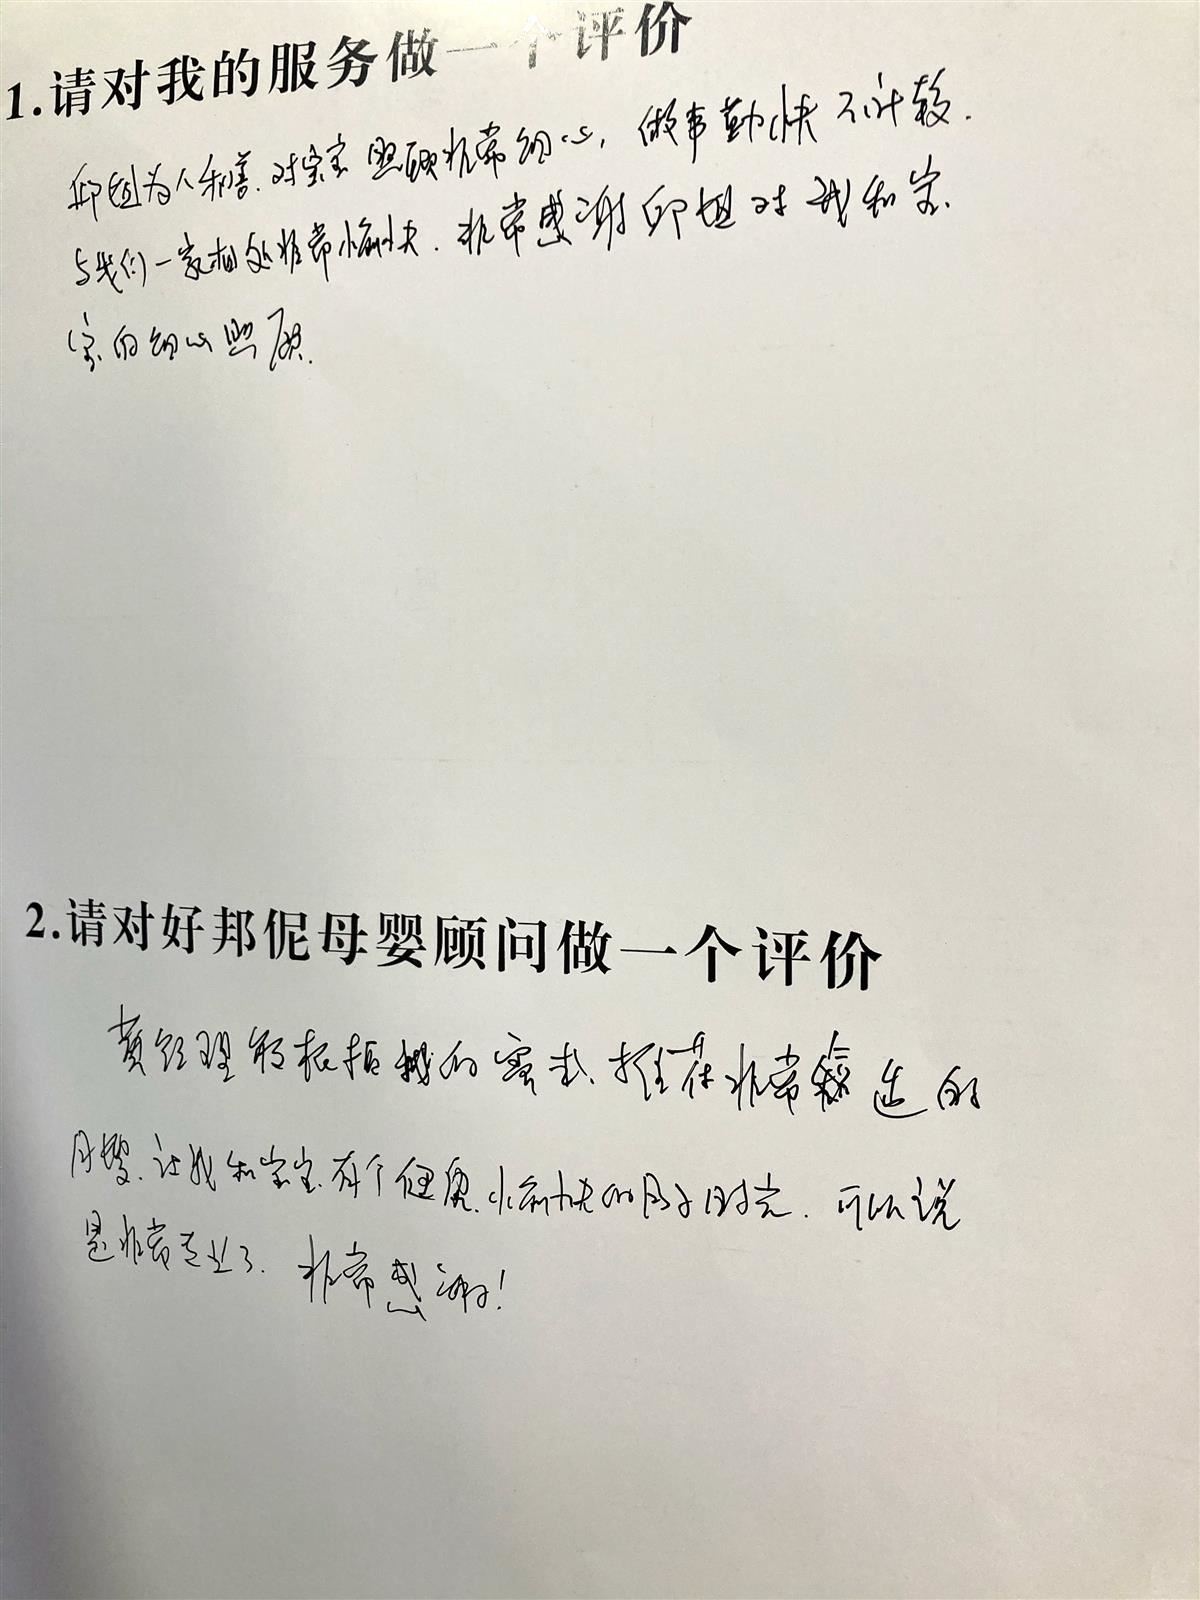 1.请对我的服务做一个评价
邱姐为人和善.对宝宝照顾非常细心,做事勤快不计较.
与我们一家相处非常愉快.非常感谢邱姐对我和宝
宝的细心照顾.
2.请对好邦伲母婴顾问做一个评价
黄经理能根据我的需求、推荐非常合适的
月嫂.让我和宝宝有个健康、愉快的月子时光.可以说
是非常专业了.非常感谢!